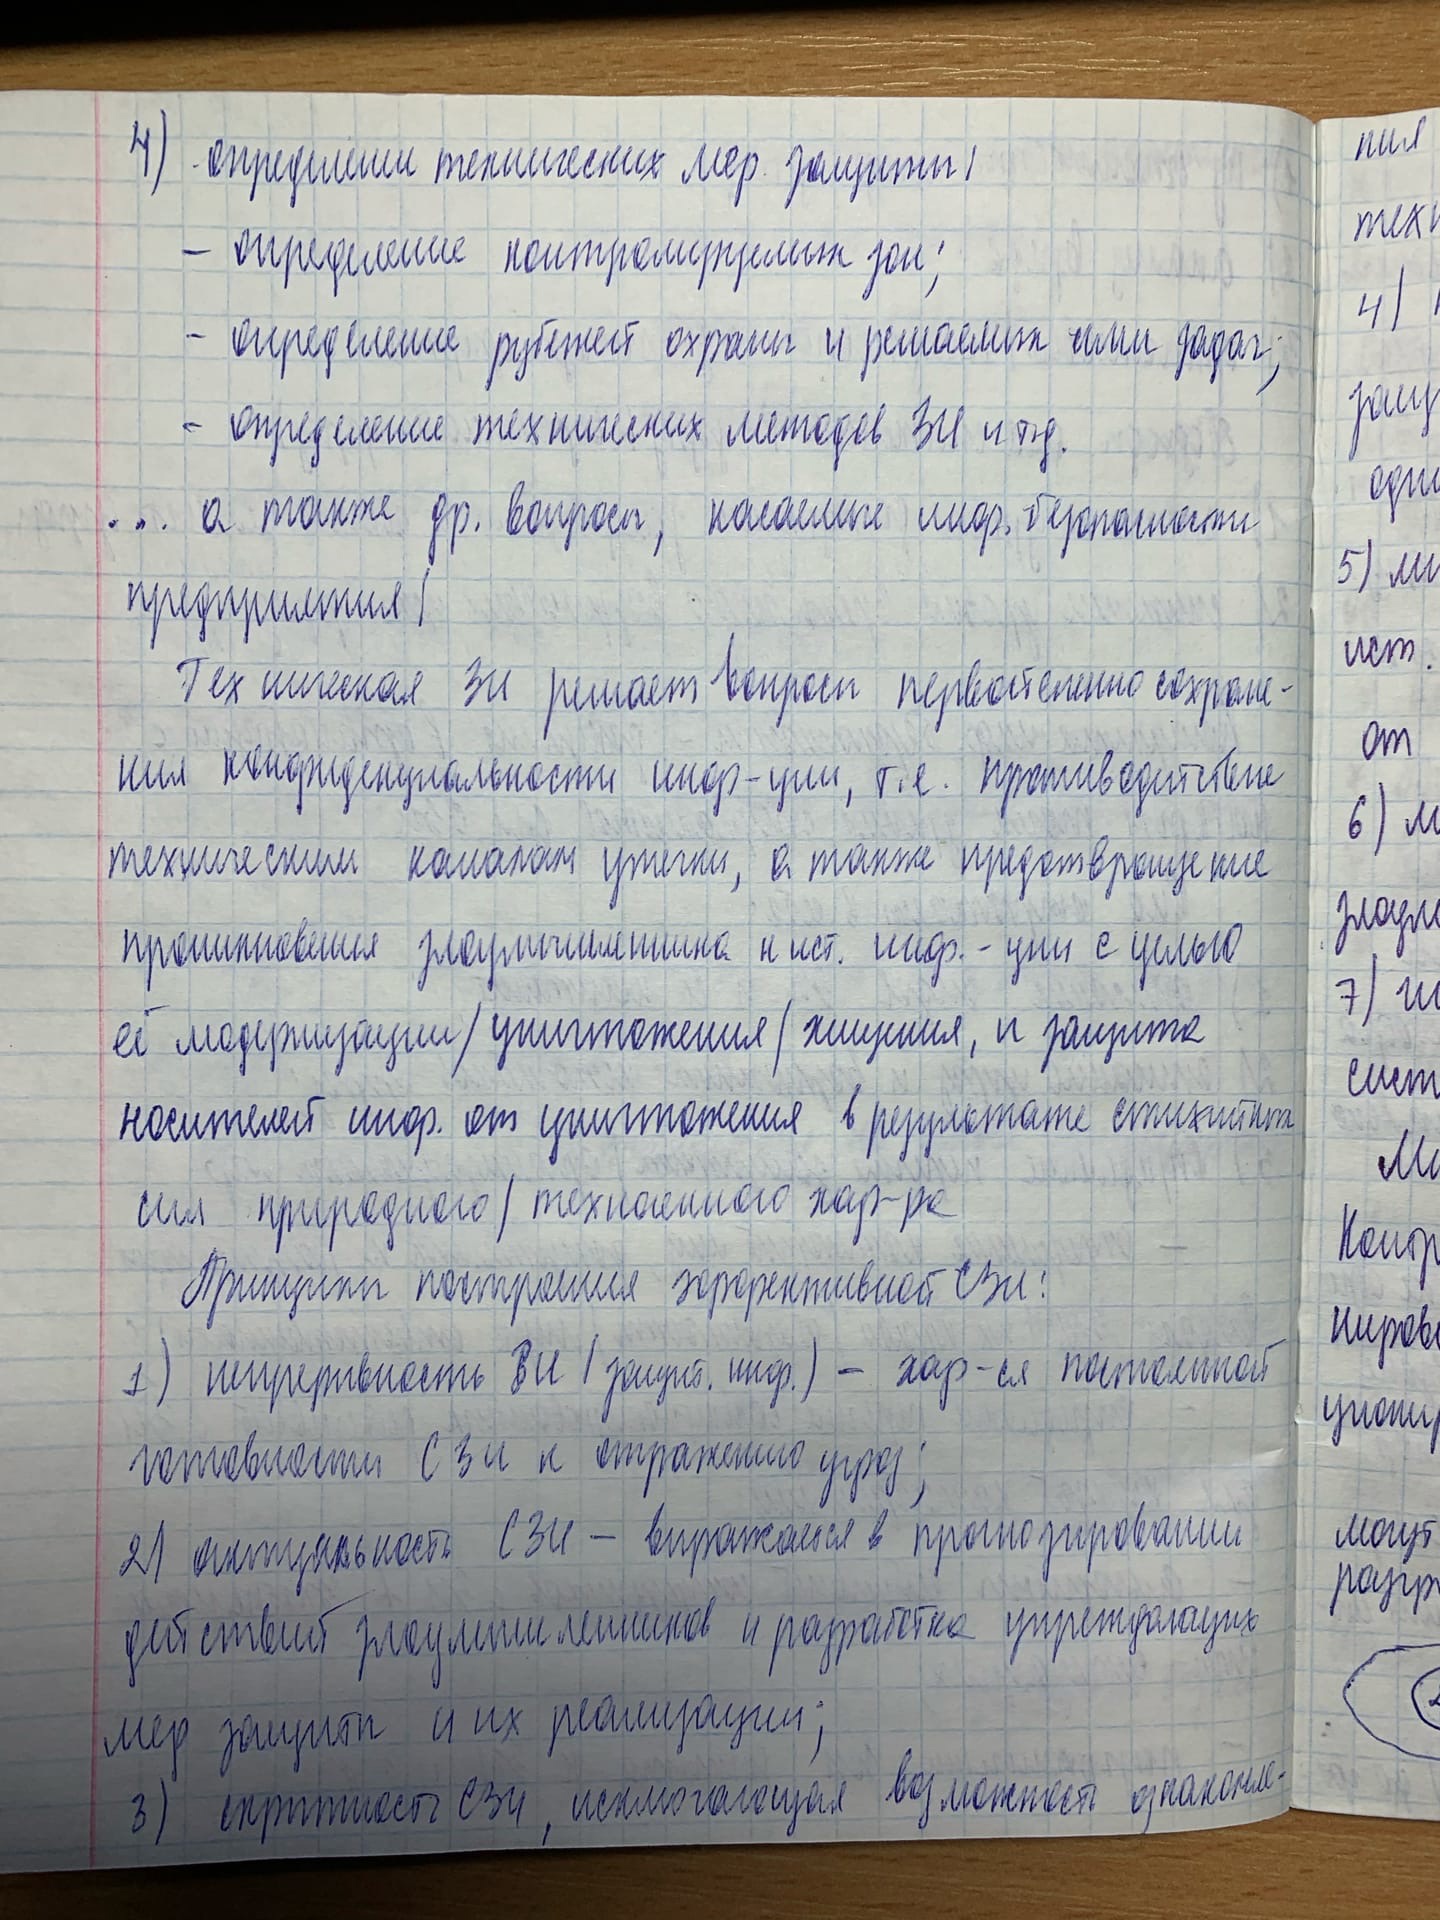 4) определении технических мер защиты/
- определение контролируемых зон;
- определение рубежей охраны и решаемых ими задач;
- определение технических методов ЗИ и тд.
... а также др. вопросы, касаемые инф. безопасности
предприятия/
Техническая ЗИ решает вопросы первостепенно сохране-
ния конфиденциальности инф-ции, т.е. противодействие
техническим каналам утечки, а также предотвращение
проникновения злоумышленника к ист. инф.-ции с целью
её модернизации/уничтожения/хищения, и защита
носителей инф. от уничтожения в результате стихийных
сил природного/техногенного хар-ра
Принципы построения эффективной СЗИ:
1) непрерывность ЗИ (защит. инф.) - хар-ся постоянной
готовности СЗИ к отражению угроз;
2) актуальность СЗИ - выражаться в прогнозировании
действий злоумышленников и разработка упреждающих
мер защиты и их реализации;
3) скрытность СЗИ, исключающая возможность ознакомле-
ния
4)
5)
ист.
от
6)
7)
могут